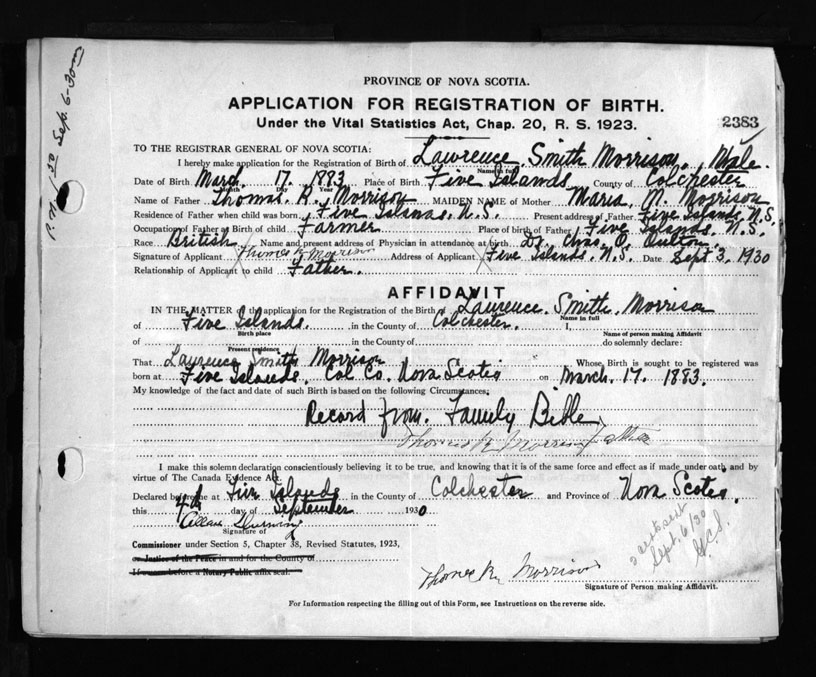 PROVINCE OF NOVA SCOTIA.
APPLICATION FOR REGISTRATION OF BIRTH.
2383
Under the Vital Statistics Act, Chap. 20, R. S. 1923.
TO THE REGISTRAR GENERAL OF NOVA SCOTIA:
I hereby make application for the Registration of Birth of Lawrence Smith Morrison. Male.
Name in full
Date of Birth March 17. 1883 Place of Birth Five Islands County of Colchester
Month Day Year
Name of Father Thomas R. Morrison MAIDEN NAME of Mother Maria N. Morrison
Residence of Father when child was born Five Islands N.S. Present address of Father Five Islands, N.S.
Occupation of Father at Birth of child Farmer Place of birth of Father Five Islands. N.S.
Race British Name and present address of Physician in attendance at birth Dr.
Signature of Applicant Thomas R Morrison Address of Applicant Five Islands. N.S. Date Sept 3. 1930
Relationship of Applicant to child Father.
AFFIDAVIT
IN THE MATTER of the application for the Registration of the Birth of Lawrence Smith Morrison
Name in full
of Five Islands. in the County of Colchester. I,
Birth place Name of person making Affidavit
of in the County of do solemnly declare:
Present residence
That Lawrence Smith Morrison Whose Birth is sought to be registered was
born at Five Islands. Col Co. Nova Scotia on March. 17. 1883.
My knowledge of the fact and date of such Birth is based on the following Circumstances:
Record from Family Bible
Thomas R Morrison father
I make this solemn declaration conscientiously believing it to be true, and knowing that it is of the same force and effect as if made under oath and by
virtue of The Canada Evidence Act.
Declared before me at Five Islands in the County of Colchester and Province of Nova Scotia.
this 4th day of September 1930
Signature of
Commissioner under Section 5, Chapter 38, Revised Statutes, 1923,
or Justice of the Peace in and for the County of
If before a Notary Public affix seal.
Thomas R Morrison
Signature of Person making Affidavit.
For Information respecting the filling out of this Form, see Instructions on the reverse side.
Sept. 6/30